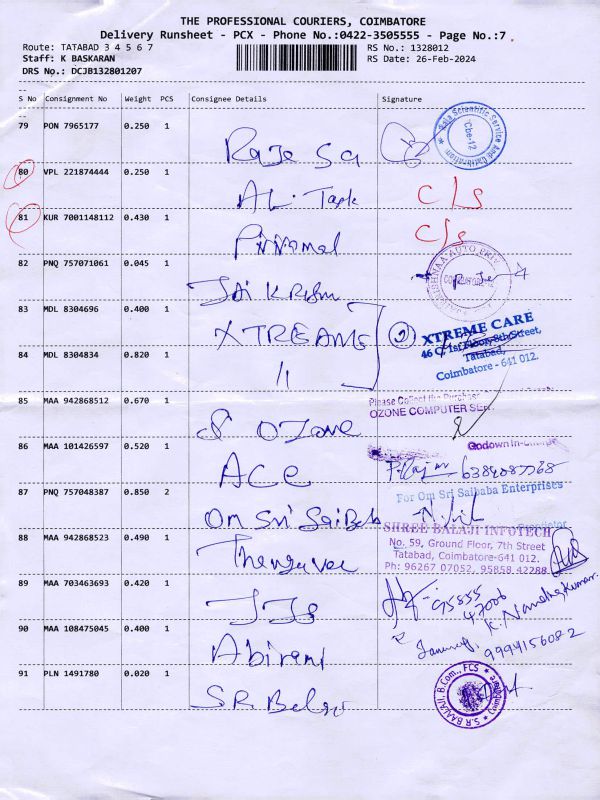 THE PROFESSIONAL COURIERS, COIMBATORE
Delivery Runsheet - PCX - Phone No.:0422-3505555 - Page No.:7
Route: TATABAD 3 4 5 6 7 RS No.: 1328012
Staff: K BASKARAN RS Date: 26-Feb-2024
DRS No.: DCJB132801207
S No Consignment No Weight PCS Consignee Details Signature
79 PON 7965177 0.250 1
Cbe-12
80 VPL 221874444 0.250 1 C/s
81 KUR 7001148112 0.430 1 C/s
82 PNQ 757071061 0.045 1
JAI KRISHN
83 MDL 8304696 0.400 1
XTREAME 2 XTREME CARE
46 C, 1st Floor, 8th Street,
Tatabad,
Coimbatore - 641 012.
84 MDL 8304834 0.820 1
11
85 MAA 942868512 0.670 1 Please Collect the Purchase
OZONE COMPUTER SER
OZone
86 MAA 101426597 0.520 1 Godown In-Charge
ACE 6384087768
87 PNQ 757048387 0.850 2 For Om Sri Saibaba Enterprises
Om Sri SaiBab
Proprietor
88 MAA 942868523 0.490 1 SHREE BALAJI INFOTECH
No. 59, Ground Floor, 7th Street
Tatabad, Coimbatore-641 012.
Ph: 96267 07052, 95858 42288
89 MAA 703463693 0.420 1
95855
47006
K. Nandhakumar.
90 MAA 108475045 0.400 1 9994156082
Abirami
91 PLN 1491780 0.020 1 S.R BALAJI, B.Com., FCS
S.R Balaji